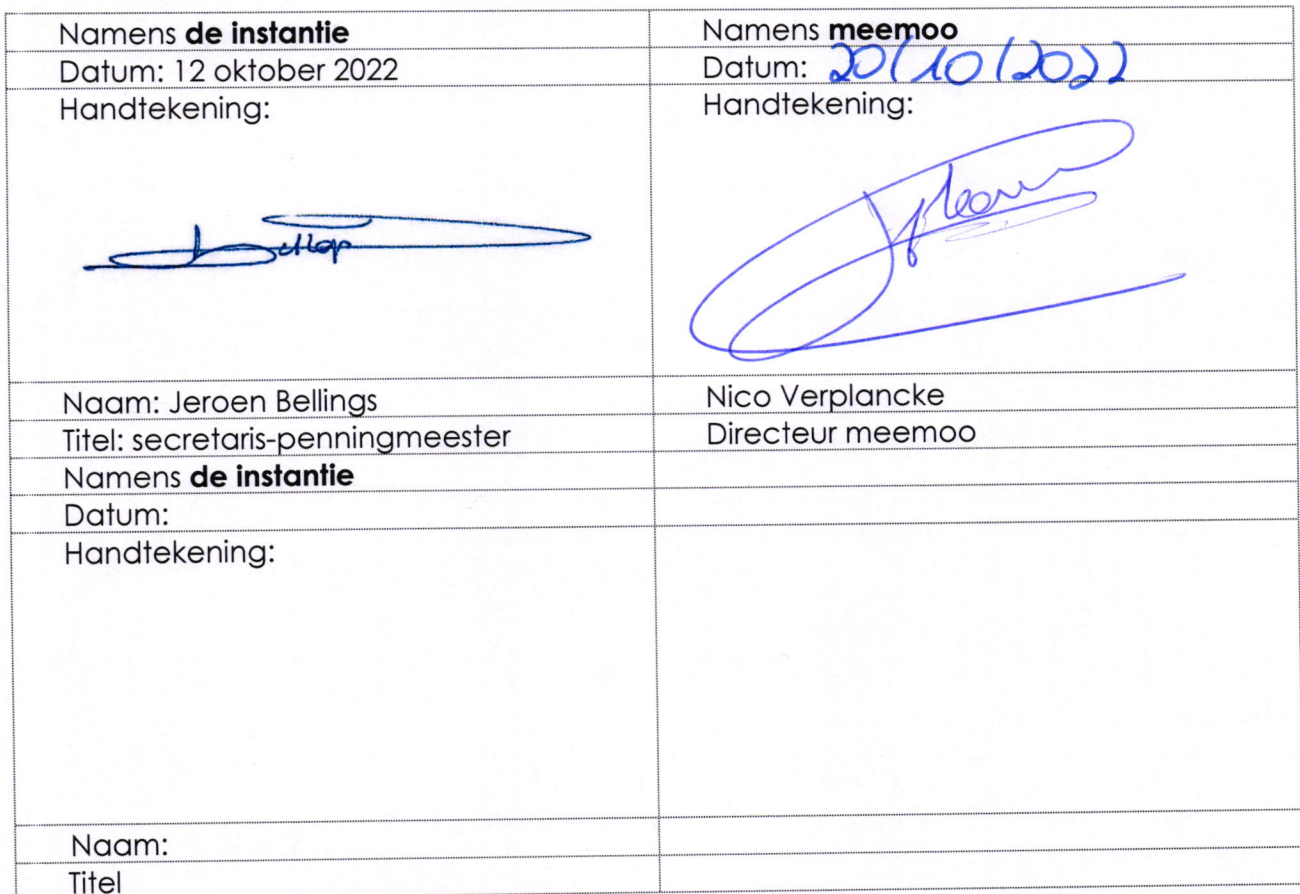 Namens de instantie
Namens meemoo
Datum: 12 oktober 2022
Datum: 20/10/2022
Handtekening:
Handtekening:
Naam: Jeroen Bellings
Nico Verplancke
Titel: secretaris-penningmeester
Directeur meemoo
Namens de instantie
Datum:
Handtekening:
Naam:
Titel